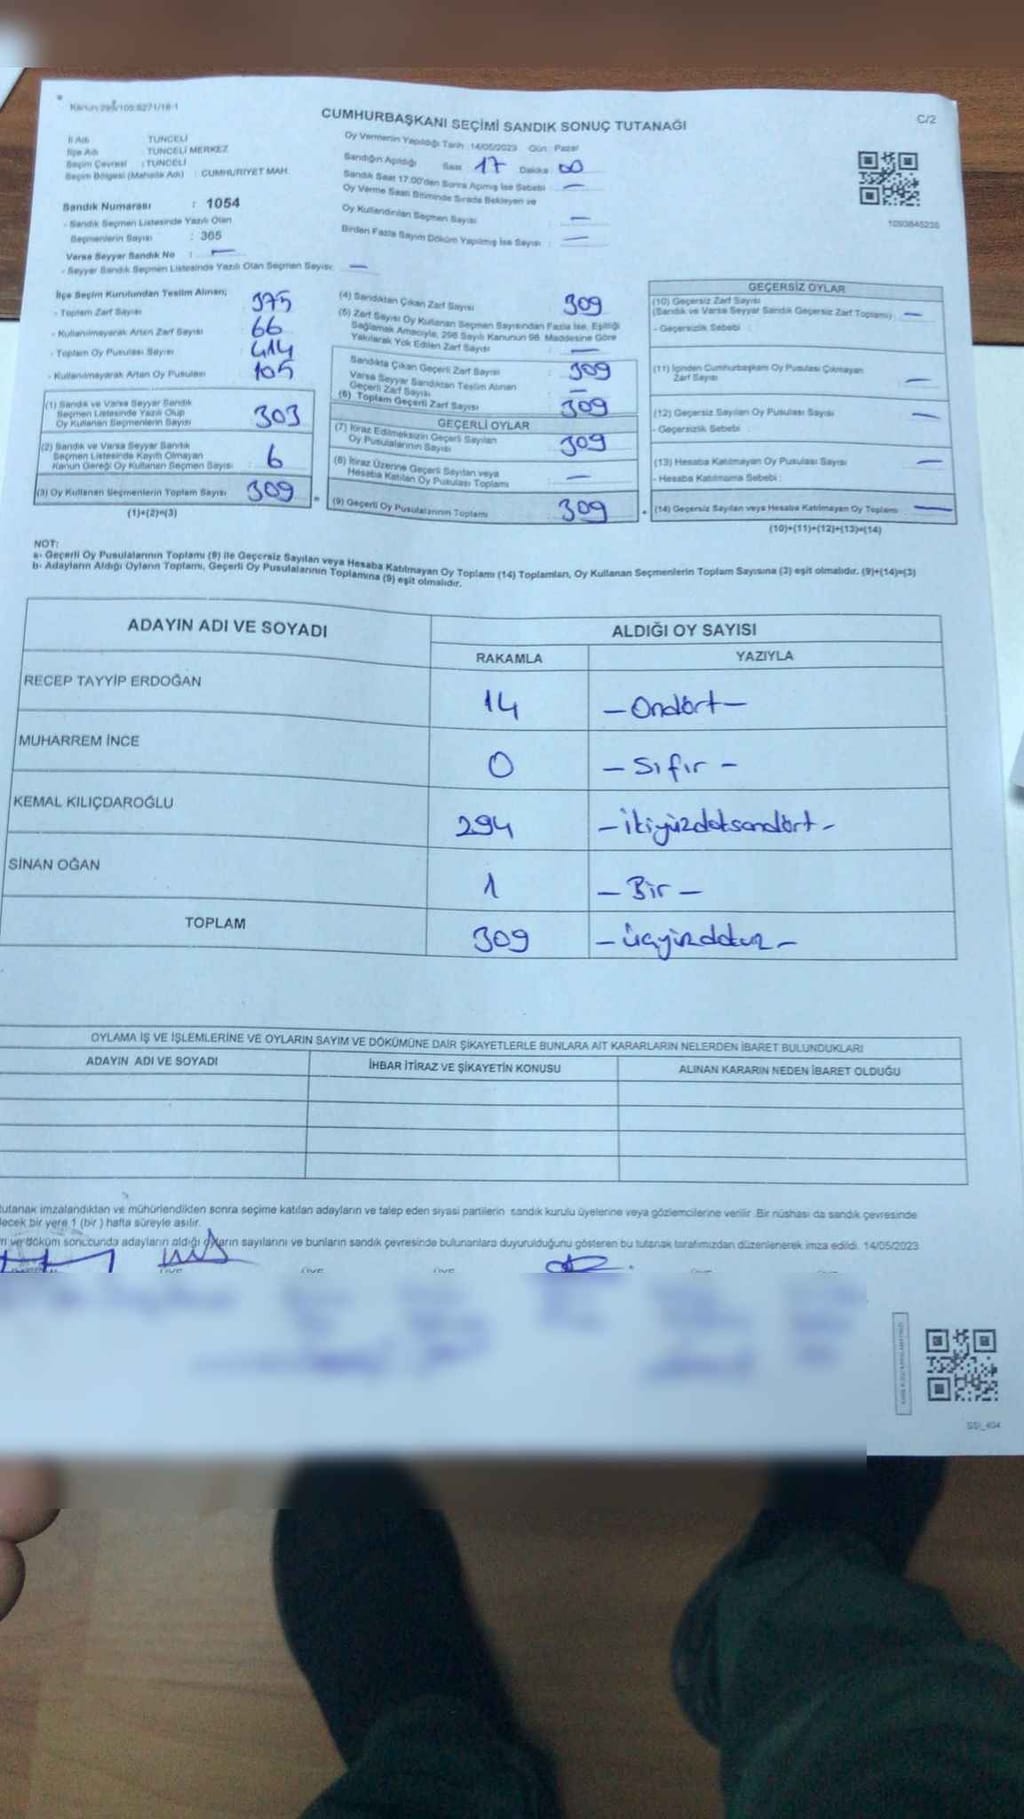 CUMHURBAŞKANI SEÇİMİ SANDIK SONUÇ TUTANAĞI
C/2
İl Adı TUNCELİ
İlçe Adı TUNCELİ MERKEZ
Seçim Çevresi : TUNCELİ
Seçim Bölgesi (Mahalle Adı) : CUMHURİYET MAH.
Oy Vermenin Yapıldığı Tarih : 14/05/2023 Gün : Pazar
Sandığın Açıldığı Saat 17 Dakika 00
Sandık Saat 17:00'den Sonra Açılmış İse Sebebi : —
Oy Verme Saati Bitiminde Sırada Bekleyen ve
Oy Kullandırılan Seçmen Sayısı : —
Birden Fazla Sayım Döküm Yapılmış İse Sayısı : —
Sandık Numarası : 1054
- Sandık Seçmen Listesinde Yazılı Olan
Seçmenlerin Sayısı : 365
Varsa Seyyar Sandık No : —
- Seyyar Sandık Seçmen Listesinde Yazılı Olan Seçmen Sayısı: —
İlçe Seçim Kurulundan Teslim Alınan;
- Toplam Zarf Sayısı : 375
- Kullanılmayarak Artan Zarf Sayısı : 66
- Toplam Oy Pusulası Sayısı : 414
- Kullanılmayarak Artan Oy Pusulası : 105
(1) Sandık ve Varsa Seyyar Sandık
Seçmen Listesinde Yazılı Olup
Oy Kullanan Seçmenlerin Sayısı : 303
(2) Sandık ve Varsa Seyyar Sandık
Seçmen Listesinde Kayıtlı Olmayan
Kanun Gereği Oy Kullanan Seçmen Sayısı : 6
(3) Oy Kullanan Seçmenlerin Toplam Sayısı 309
(1)+(2)=(3)
(4) Sandıktan Çıkan Zarf Sayısı 309
(5) Zarf Sayısı Oy Kullanan Seçmen Sayısından Fazla İse, Eşitliği
Sağlamak Amacıyla, 298 Sayılı Kanunun 98. Maddesine Göre
Yakılarak Yok Edilen Zarf Sayısı : —
Sandıkta Çıkan Geçerli Zarf Sayısı : 309
Varsa Seyyar Sandıktan Teslim Alınan
Geçerli Zarf Sayısı : —
(6) Toplam Geçerli Zarf Sayısı : 309
GEÇERLİ OYLAR
(7) İtiraz Edilmeksizin Geçerli Sayılan
Oy Pusulalarının Sayısı : 309
(8) İtiraz Üzerine Geçerli Sayılan veya
Hesaba Katılan Oy Pusulası Toplamı : —
(9) Geçerli Oy Pusulalarının Toplamı : 309
1093845235
GEÇERSİZ OYLAR
(10) Geçersiz Zarf Sayısı
(Sandık ve Varsa Seyyar Sandık Geçersiz Zarf Toplamı) : —
- Geçersizlik Sebebi :
(11) İçinden Cumhurbaşkanı Oy Pusulası Çıkmayan
Zarf Sayısı : —
(12) Geçersiz Sayılan Oy Pusulası Sayısı : —
- Geçersizlik Sebebi :
(13) Hesaba Katılmayan Oy Pusulası Sayısı : —
- Hesaba Katılmama Sebebi :
(14) Geçersiz Sayılan veya Hesaba Katılmayan Oy Toplamı : —
(10)+(11)+(12)+(13)=(14)
NOT:
a- Geçerli Oy Pusulalarının Toplamı (9) ile Geçersiz Sayılan veya Hesaba Katılmayan Oy Toplamı (14) Toplamları, Oy Kullanan Seçmenlerin Toplam Sayısına (3) eşit olmalıdır. (9)+(14)=(3)
b- Adayların Aldığı Oyların Toplamı, Geçerli Oy Pusulalarının Toplamına (9) eşit olmalıdır.
ADAYIN ADI VE SOYADI ALDIĞI OY SAYISI
RAKAMLA YAZIYLA
RECEP TAYYİP ERDOĞAN 14 — Ondört —
MUHARREM İNCE 0 — Sıfır —
KEMAL KILIÇDAROĞLU 294 — ikiyüzdoksandört —
SİNAN OĞAN 1 — Bir —
TOPLAM 309 — üçyüzdokuz —
OYLAMA İŞ VE İŞLEMLERİNE VE OYLARIN SAYIM VE DÖKÜMÜNE DAİR ŞİKAYETLERLE BUNLARA AİT KARARLARIN NELERDEN İBARET BULUNDUKLARI
ADAYIN ADI VE SOYADI İHBAR İTİRAZ VE ŞİKAYETİN KONUSU ALINAN KARARIN NEDEN İBARET OLDUĞU
tutanak imzalandıktan ve mühürlendikten sonra seçime katılan adayların ve talep eden siyasi partilerin sandık kurulu üyelerine veya gözlemcilerine verilir. Bir nüshası da sandık çevresinde
lecek bir yere 1 (bir ) hafta süreyle asılır.
m ve döküm sonucunda adayların aldığı oyların sayılarını ve bunların sandık çevresinde bulunanlara duyurulduğunu gösteren bu tutanak tarafımızdan düzenlenerek imza edildi. 14/05/2023